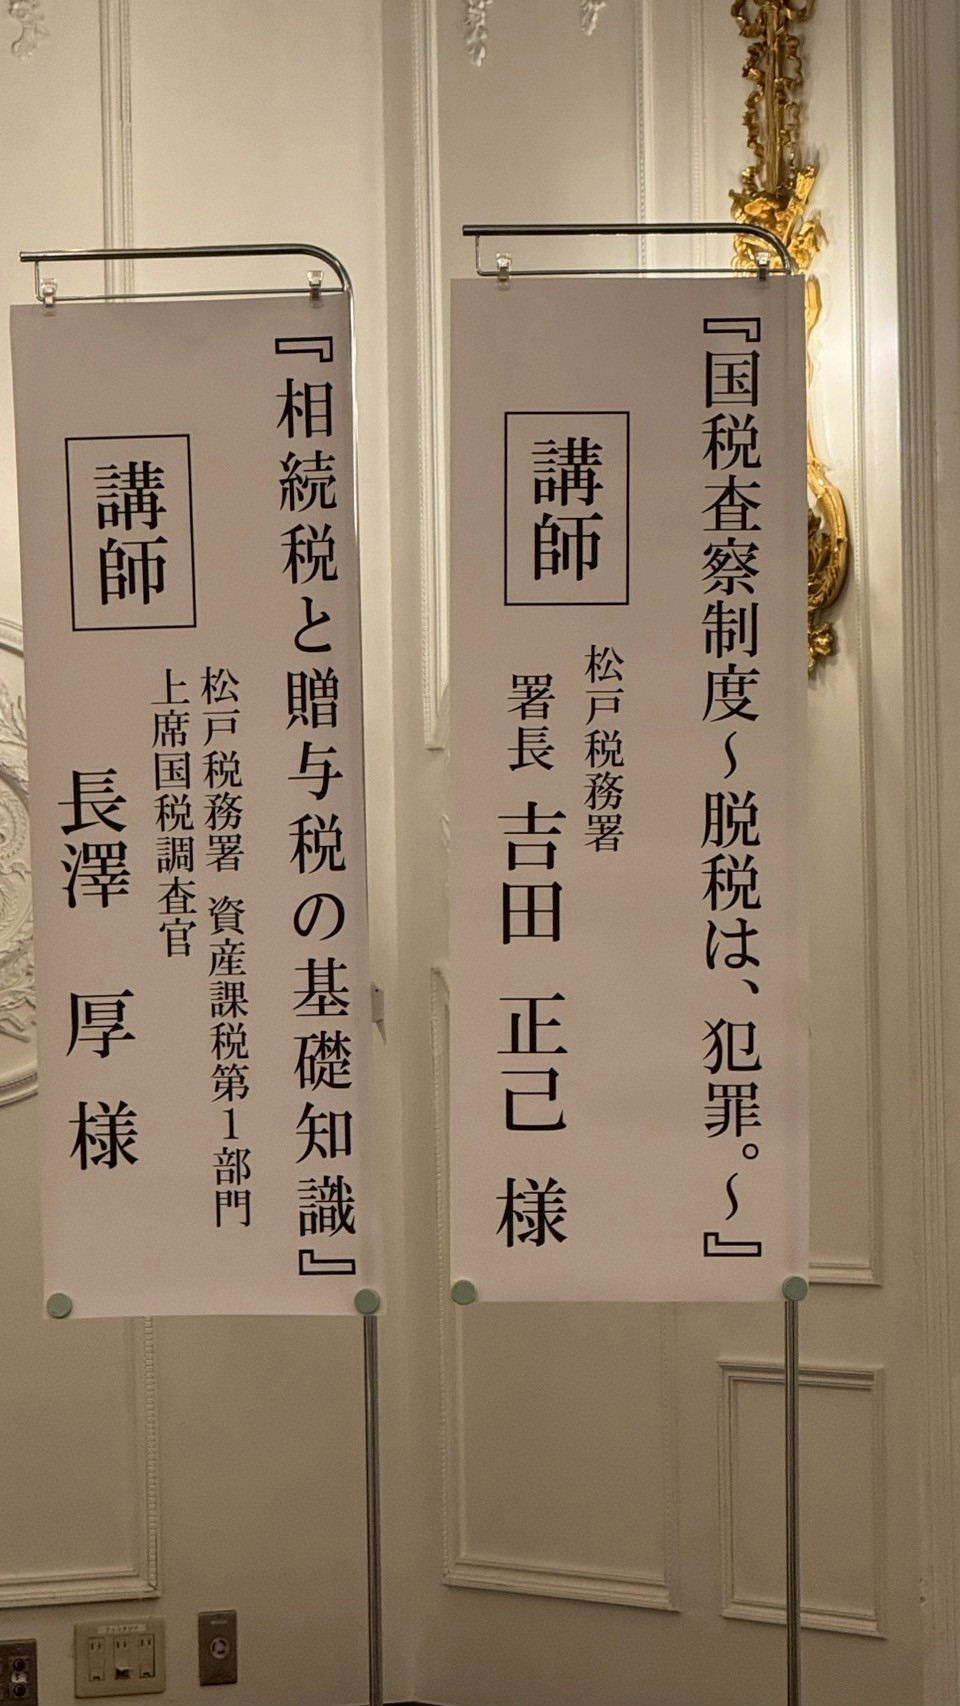 『国税査察制度～脱税は、犯罪。～』
講師
松戸税務署
署長 吉田 正己 様
『相続税と贈与税の基礎知識』
講師
松戸税務署 資産課税第1部門
上席国税調査官
長澤 厚 様